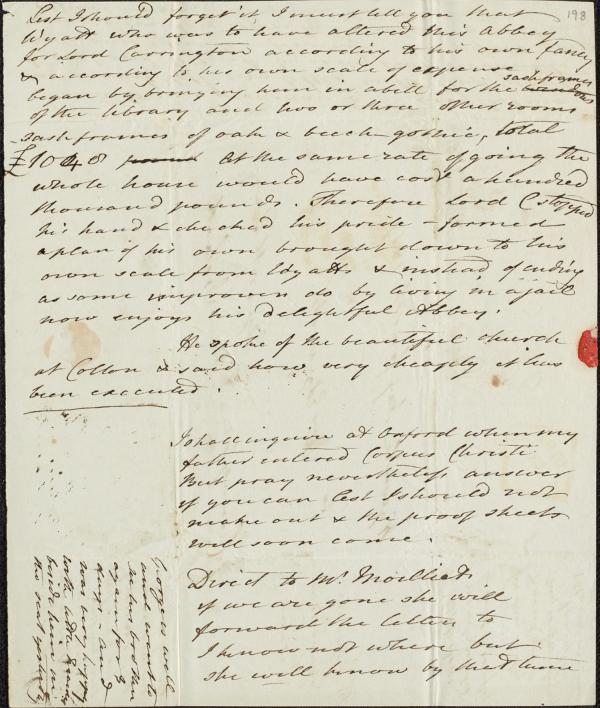 198
Lest I should forget it I must tell you that
Wyatt who was to have altered this Abbey
for Lord Carrington according to his own fancy
& according to his own scale of expense
began by bringing him in a bill for the sash frames
of the library and two or three other rooms
sash frames of oak & beech gothic, total
£1040 8 At the same rate of going the
whole house would have cost a hundred
thousand pounds. Therefore Lord C stopped
his hand & checked his pride – formed
a plan of his own brought down to his
own scale from Wyatts & instead of ending
as some improvers do by living in a jail
now enjoys his delightful Abbey.
He spoke of the beautiful church
at Collon & said how very cheaply it has
been executed.
I shall inquire at Oxford when my
father entered Corpus Christi
But pray nevertheless answer
if you can lest I should not
make out & the proof sheets
will soon come.
Direct to Mr. Moilliet
if we are gone she will
forward the letter to
I know not where but
she will know by that time
well
and went to
his
again for
days – and
was very happy
with
beside him in
the seat